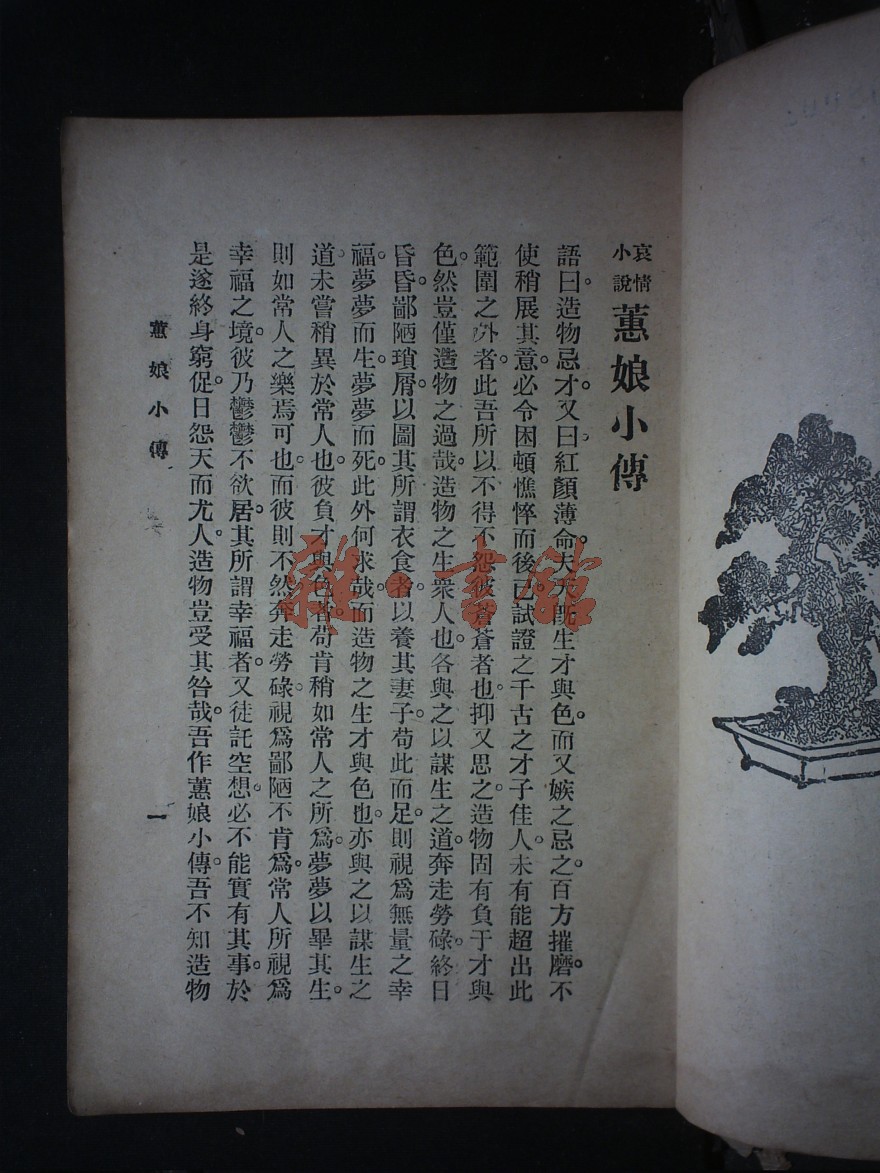 哀情小說 蕙娘小傳
語曰。造物忌才。又曰。紅顏薄命。夫天既生才與色。而又嫉之忌之。百方摧磨。不
使稍展其意。必令困頓憔悴而後已。試證之千古之才子佳人。未有能超出此
範圍之外者。此吾所以不得不怨彼蒼蒼者也。抑又思之。造物固有負于才與
色。然豈僅造物之過哉。造物之生衆人也。各與之以謀生之道。奔走勞碌。終日
昏昏。鄙陋瑣屑。以圖其所謂衣食者。以養其妻子。苟此而足。則視爲無量之幸
福。夢夢而生。夢夢而死。此外何求哉。而造物之生才與色也。亦與之以謀生之
道。未嘗稍異於常人也。彼負才與色者。苟肯稍如常人之所爲。夢夢以畢其生。
則如常人之樂焉可也。而彼則不然。奔走勞碌。視爲鄙陋不肯爲。常人所視爲
幸福之境。彼乃鬱鬱不欲居。其所謂幸福者。又徒託空想。必不能實有其事。於
是遂終身窮促。日怨天而尤人。造物豈受其咎哉。吾作蕙娘小傳。吾不知造物
蕙娘小傳
一
雜·書館